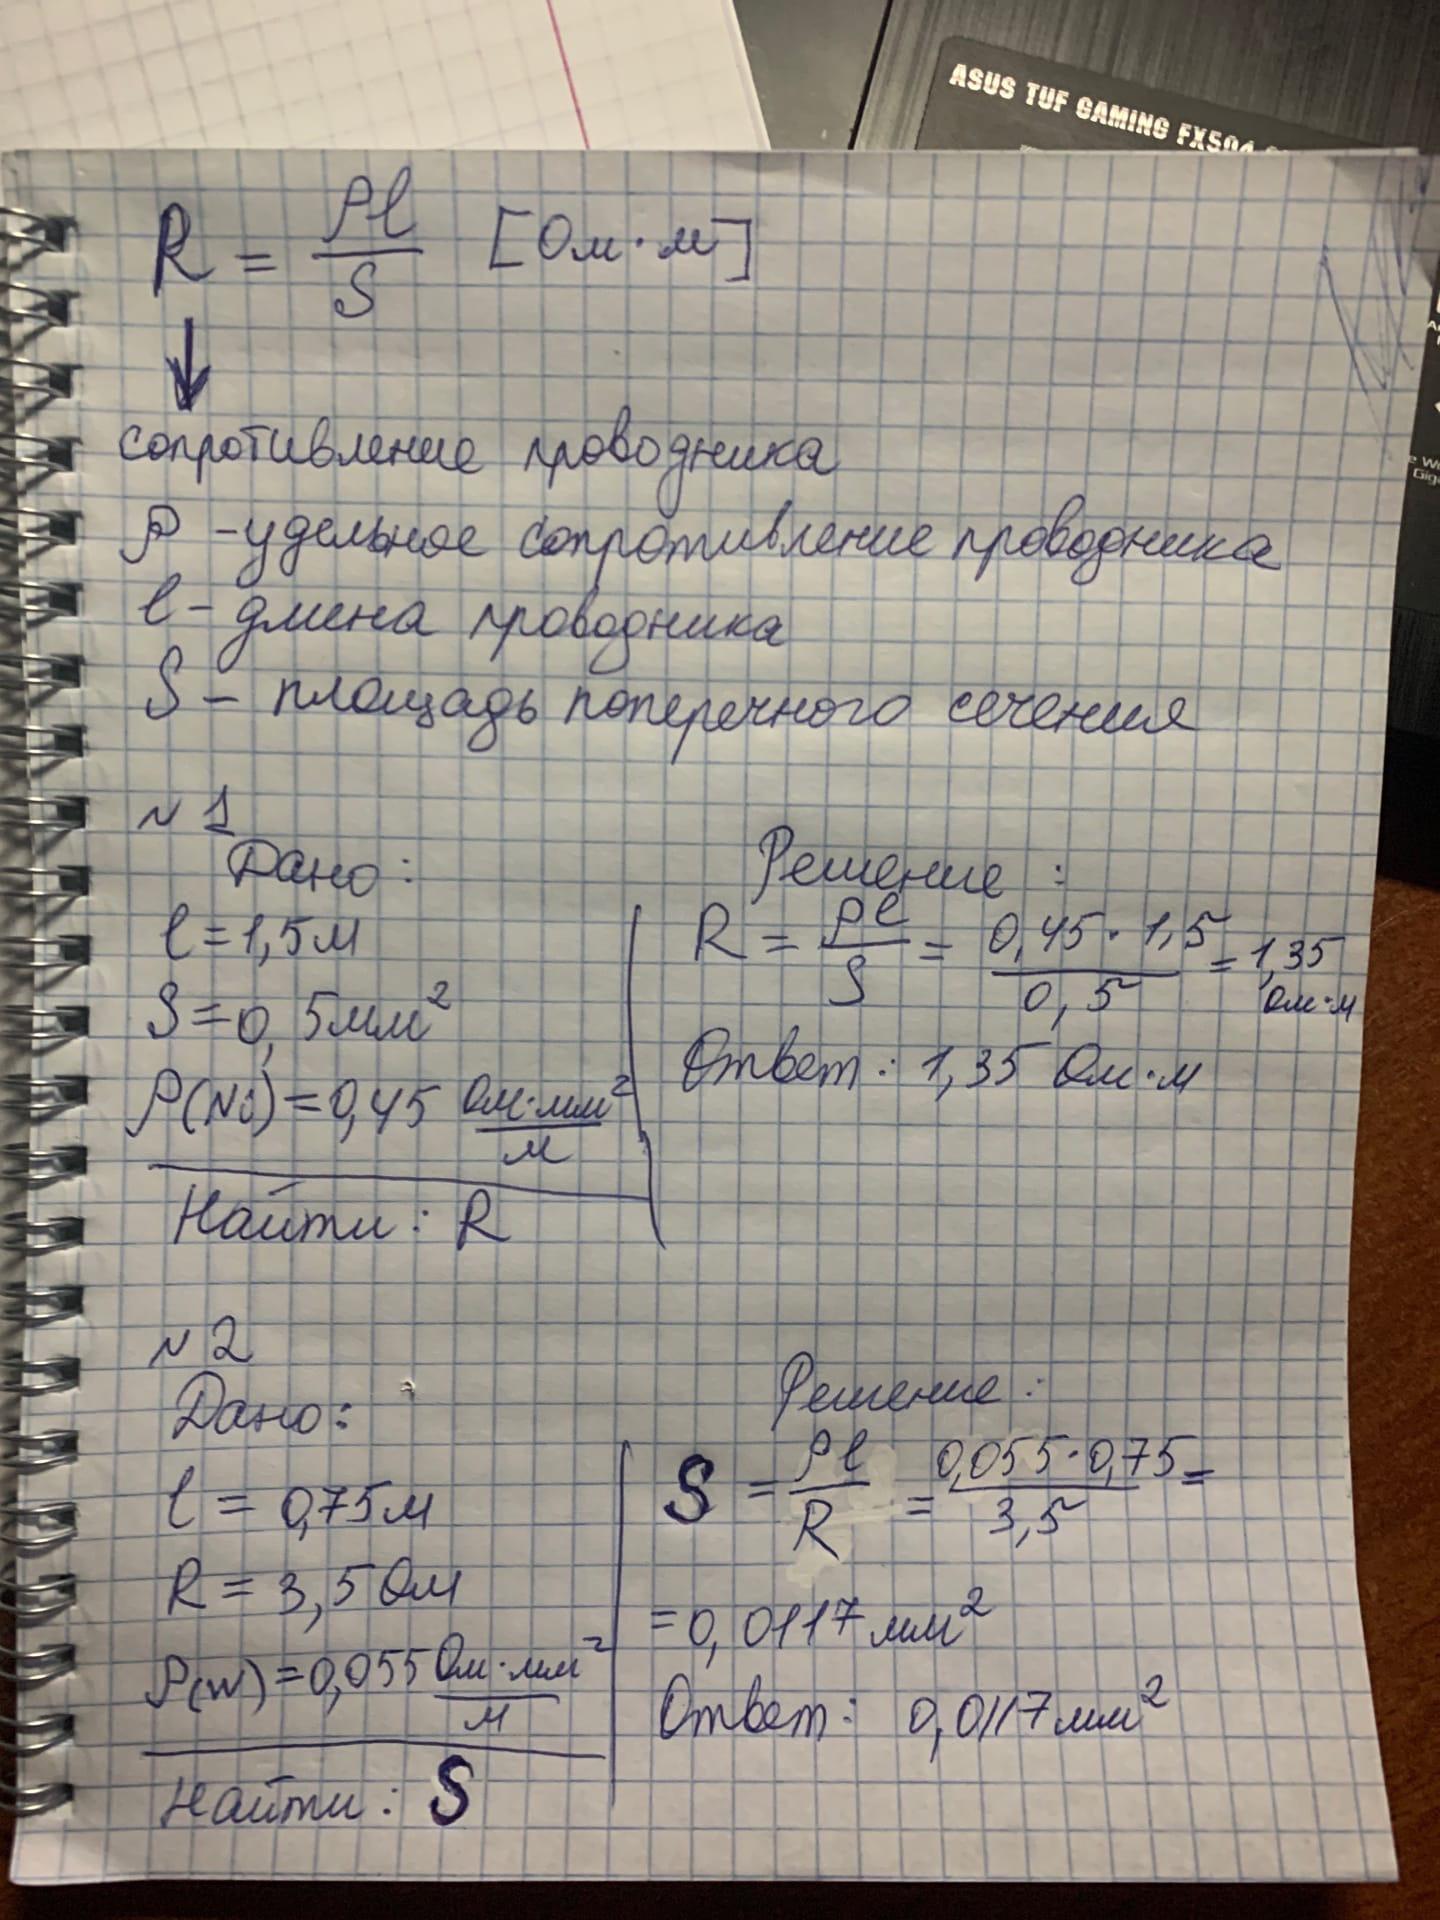 ASUS TUF GAMING FX504
R = ρl/S [Ом·м]
сопротивление проводника
ρ - удельное сопротивление проводника
l - длина проводника
S - площадь поперечного сечения
N 1
Дано:
l = 1,5м
S = 0,5мм²
ρ(Ni) = 0,45 Ом·мм²/м
Найти: R
Решение:
R = ρl/S = 0,45·1,5/0,5 = 1,35 Ом·м
Ответ: 1,35 Ом·м
N 2
Дано:
l = 0,75м
R = 3,5 Ом
ρ(W) = 0,055 Ом·мм²/м
Найти: S
Решение:
S = ρl/R = 0,055·0,75/3,5 =
= 0,0117 мм²
Ответ: 0,0117 мм²